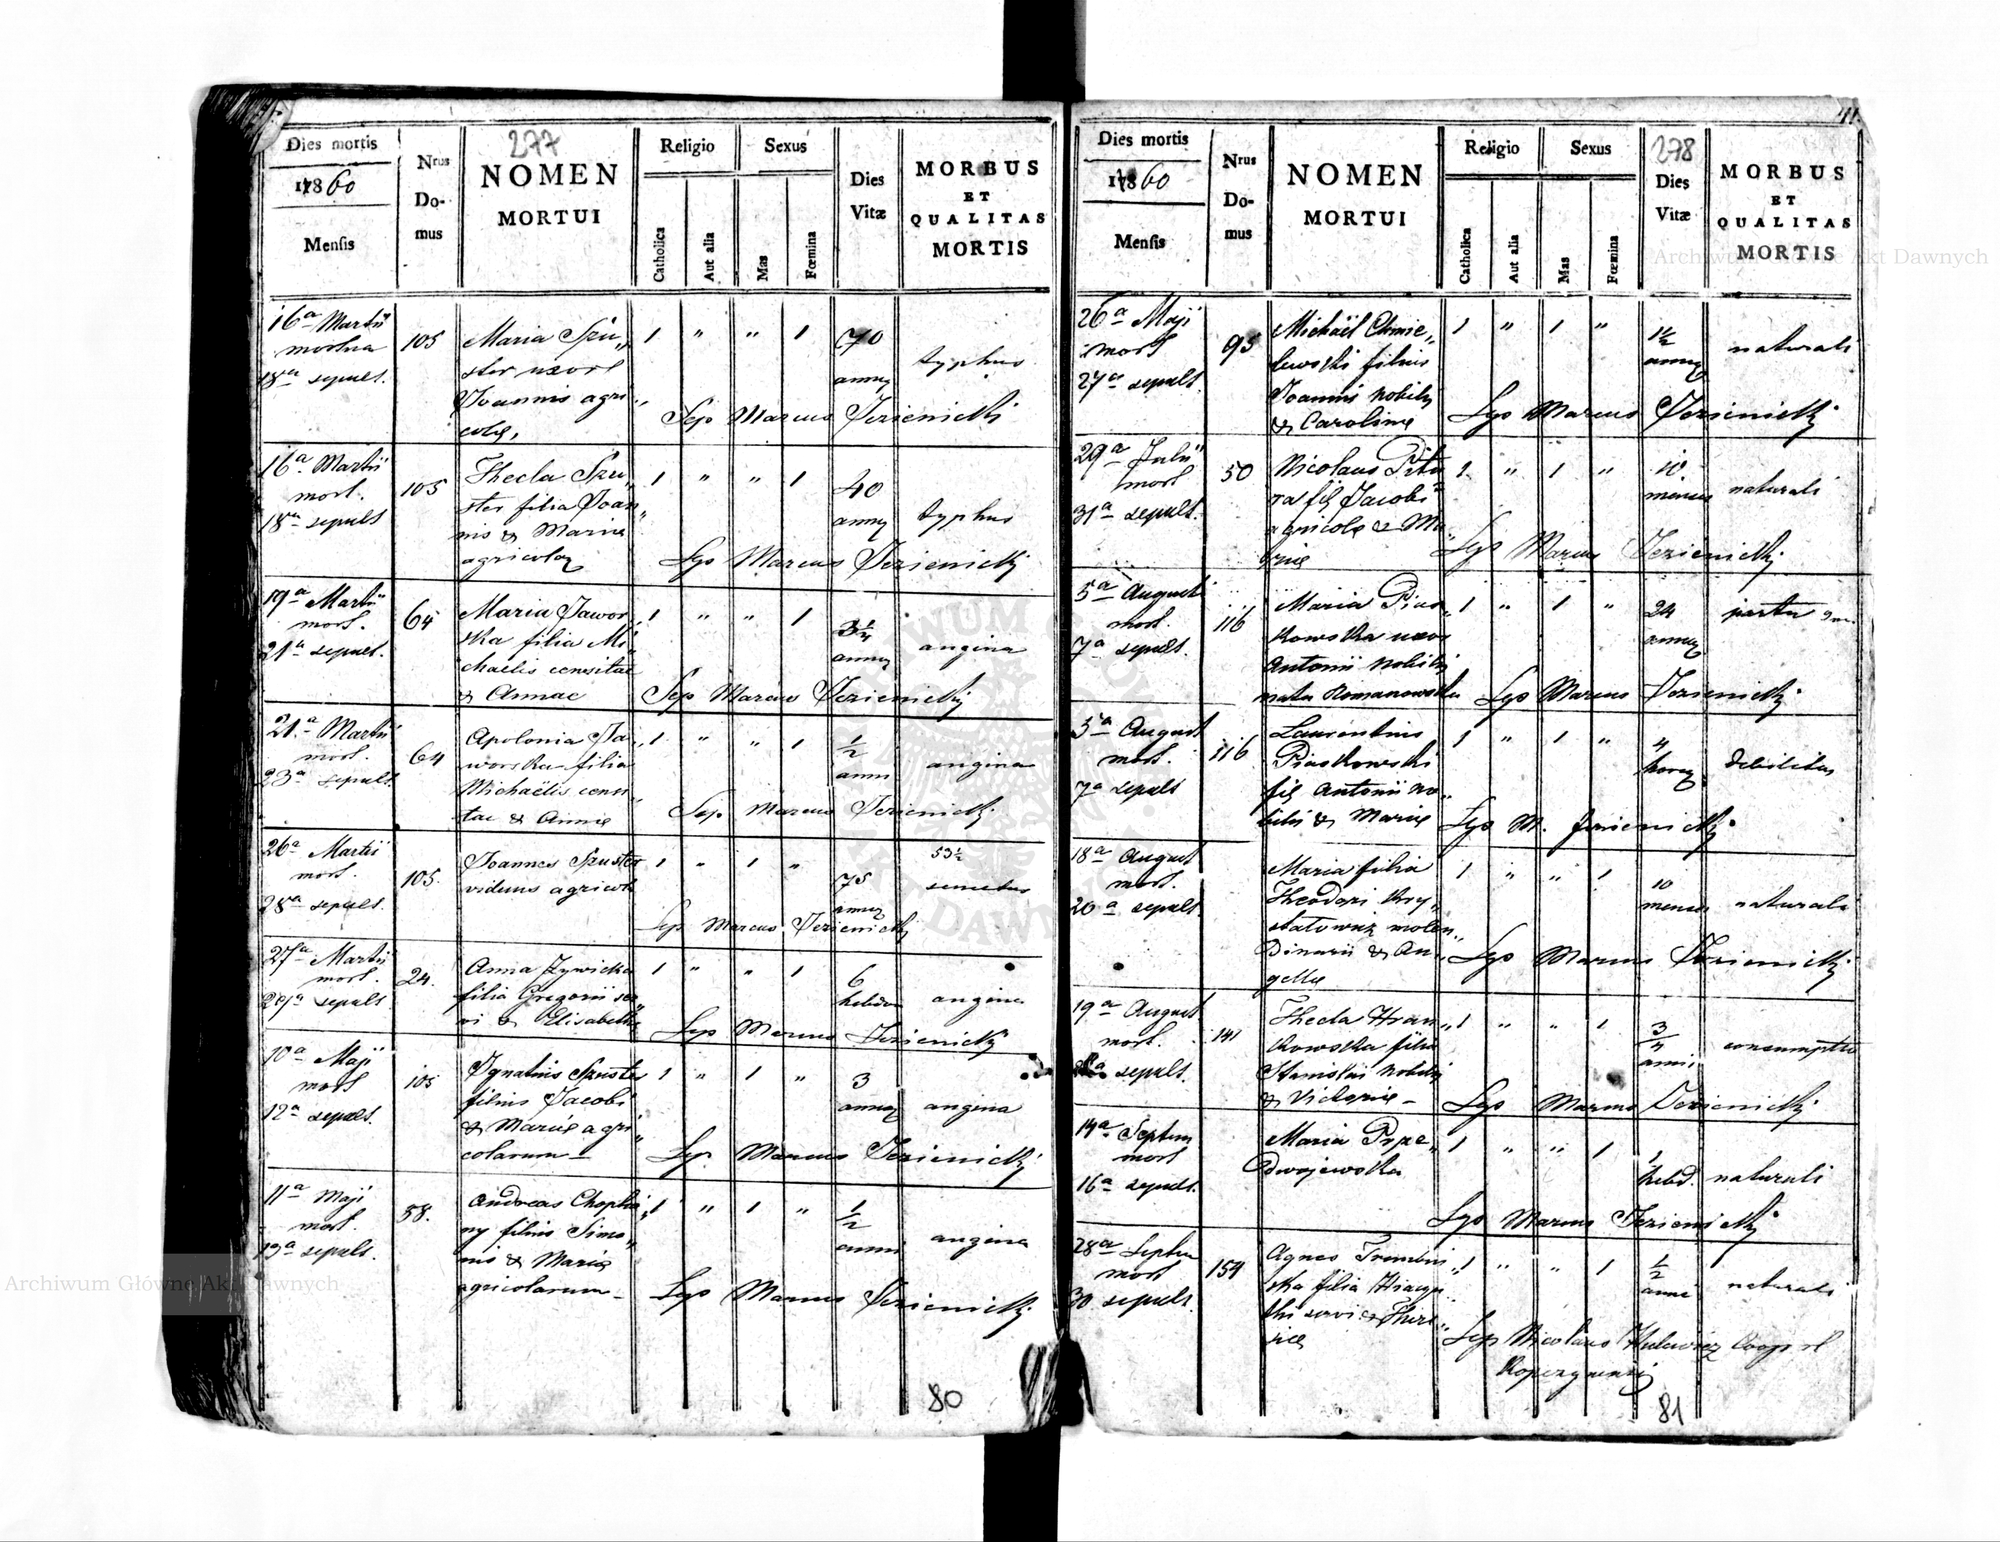 277
Dies mortis
1860
Mensis
Nrus Domus
NOMEN
MORTUI
Religio
Catholica
Aut alia
Sexus
Mas
Fœmina
Dies
Vitæ
MORBUS
ET
QUALITAS
MORTIS
16a Martii
mortua
18va sepult.
105
Maria Szu„
ster uxor
Joannis agri„
colæ,
1 „ „ 1
70
annor
typhus
Sep Marcus Jezienicki
16a Martii
mort.
18va sepult
105
Thecla Szu„
ster filia Joan„
nis & Mariæ
agricolar
1 „ „ 1
40
annor
typhus
Sep Marcus Jezienicki
19a Martii
mort.
21a sepult.
64
Maria Jawor„
ska filia Mi„
chaelis
& Annae
1 „ „ 1
annor
angina
Sep Marcus Jezienicki
21a Martii
mort.
23a sepult.
64
Apolonia Ja„
worska filia
Michaëlis
tae & Annæ
1 „ „ 1
1/2
anni
angina
Sep. Marcus Jezienicki
26a Martii
mort.
28a sepult.
105.
Joannes Szuster
viduus agricola
1 „ 1 „
75
annor
53½
senectus
Sep Marcus Jezienicki
27a Martii
mort.
29a sepult
24.
Anna Zywicka
filia Gregorii ser„
vi & Elisabethæ
1 „ „ 1
6
hebdom
angina
Sep Marcus Jezienicki
10a Maji
mort
12a sepult.
105
Ignatius Szuster
filius Jacobi
& Mariæ agri„
colarum –
1 „ 1 „
3
annor
angina
Sep. Marcus Jezienicki
11a Maji
mort.
13a sepult.
58.
Andreas Chopta„
ny filius Simo„
nis & Mariæ
agricolarum –
1 „ 1 „
1/2
anni
angina
Sep Marcus Jezienicki
80
41.
278
Dies mortis
1860
Mensis
Nrus Domus
NOMEN
MORTUI
Religio
Catholica
Aut alia
Sexus
Mas
Fœmina
Dies
Vitæ
MORBUS
ET
QUALITAS
MORTIS
26a Maji
mort
27a sepult.
95
Michaël Chmie„
lewski filius
Joannis nobilis
& Carolinæ
1 „ 1 „
1½
annor
naturali
Sep Marcus Jezienicki
29a Julii
mort
31a sepult.
50
Nicolaus Pito
ra fil Jacobi
agricolæ & Ma„
riæ
1 „ 1 „
10
menses
naturali
Sep Marcus Jezienicki
5a August
mort.
7a sepult.
116
Maria Pias„
kowska uxor
Antonii nobilis
nata Romanowska
1 „ 1 „
24
annor
partu
Sep Marcus Jezienicki
5a August
mort.
7a sepult
116
Laurentius
Piaskowski
fil Antonii no„
bilis & Mariæ
1 „ 1 „
4
horar
debilitas
Sep M. Jezienicki
18a August
mort.
20a sepult.
Maria filia
Theodori Kry„
statowicz molen„
dinarii & An„
gellæ
1 „ „ 1
10
menses
naturali
Sep Marcus Jezienicki
19a August
mort.
sepult.
141
Thecla Hran„
kowska filia
Stanislai nobilis
& Victoriæ –
1 „ „ 1
3/4
anni
consumptio
Sep Marcus Jezienicki
14a Septem
mort
16a sepult.
Maria Prze„
dwojewska
1 „ „ 1
1
hebd.
naturali
Sep Marcus Jezienicki
28a Septem
mort
30 sepult.
154
Agnes Trembin„
ska filia Hiacyn„
thi servi & There„
siæ
1 „ „ 1
1/2
anni
naturali
Sep Nicolaus Hulewicz Coop rl
81
Archiwum Główne Akt Dawnych
Archiwum Główne Akt Dawnych